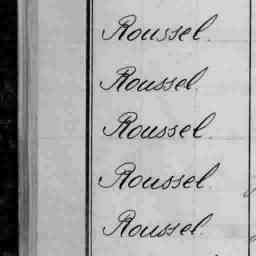 Roussel.
Roussel.
Roussel.
Roussel.
Roussel.